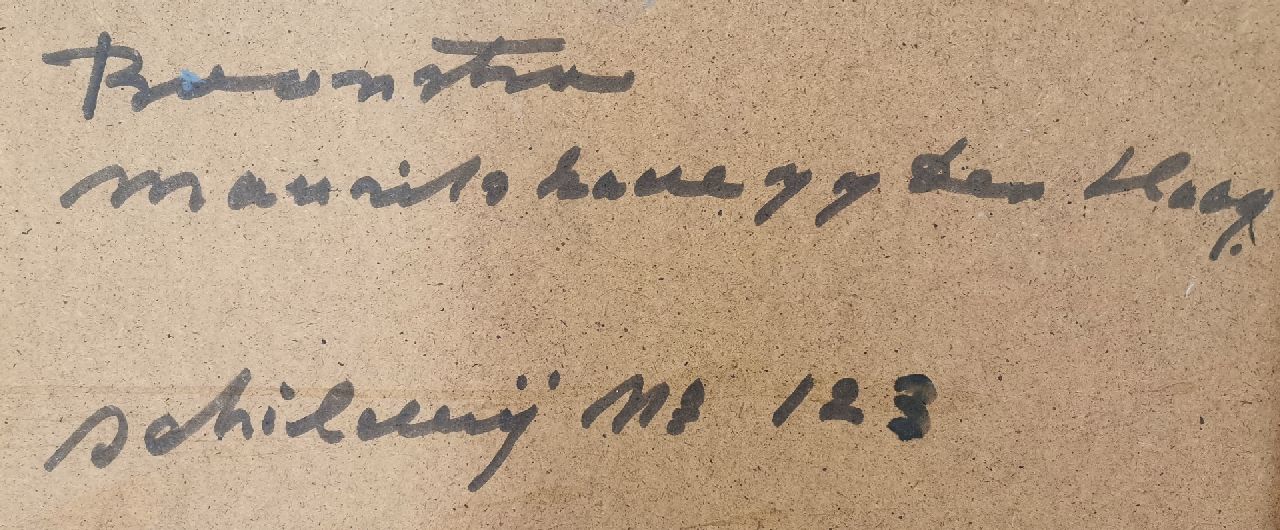 Boonstra
Mauritskade 77 Den Haag.
schilderij No 123